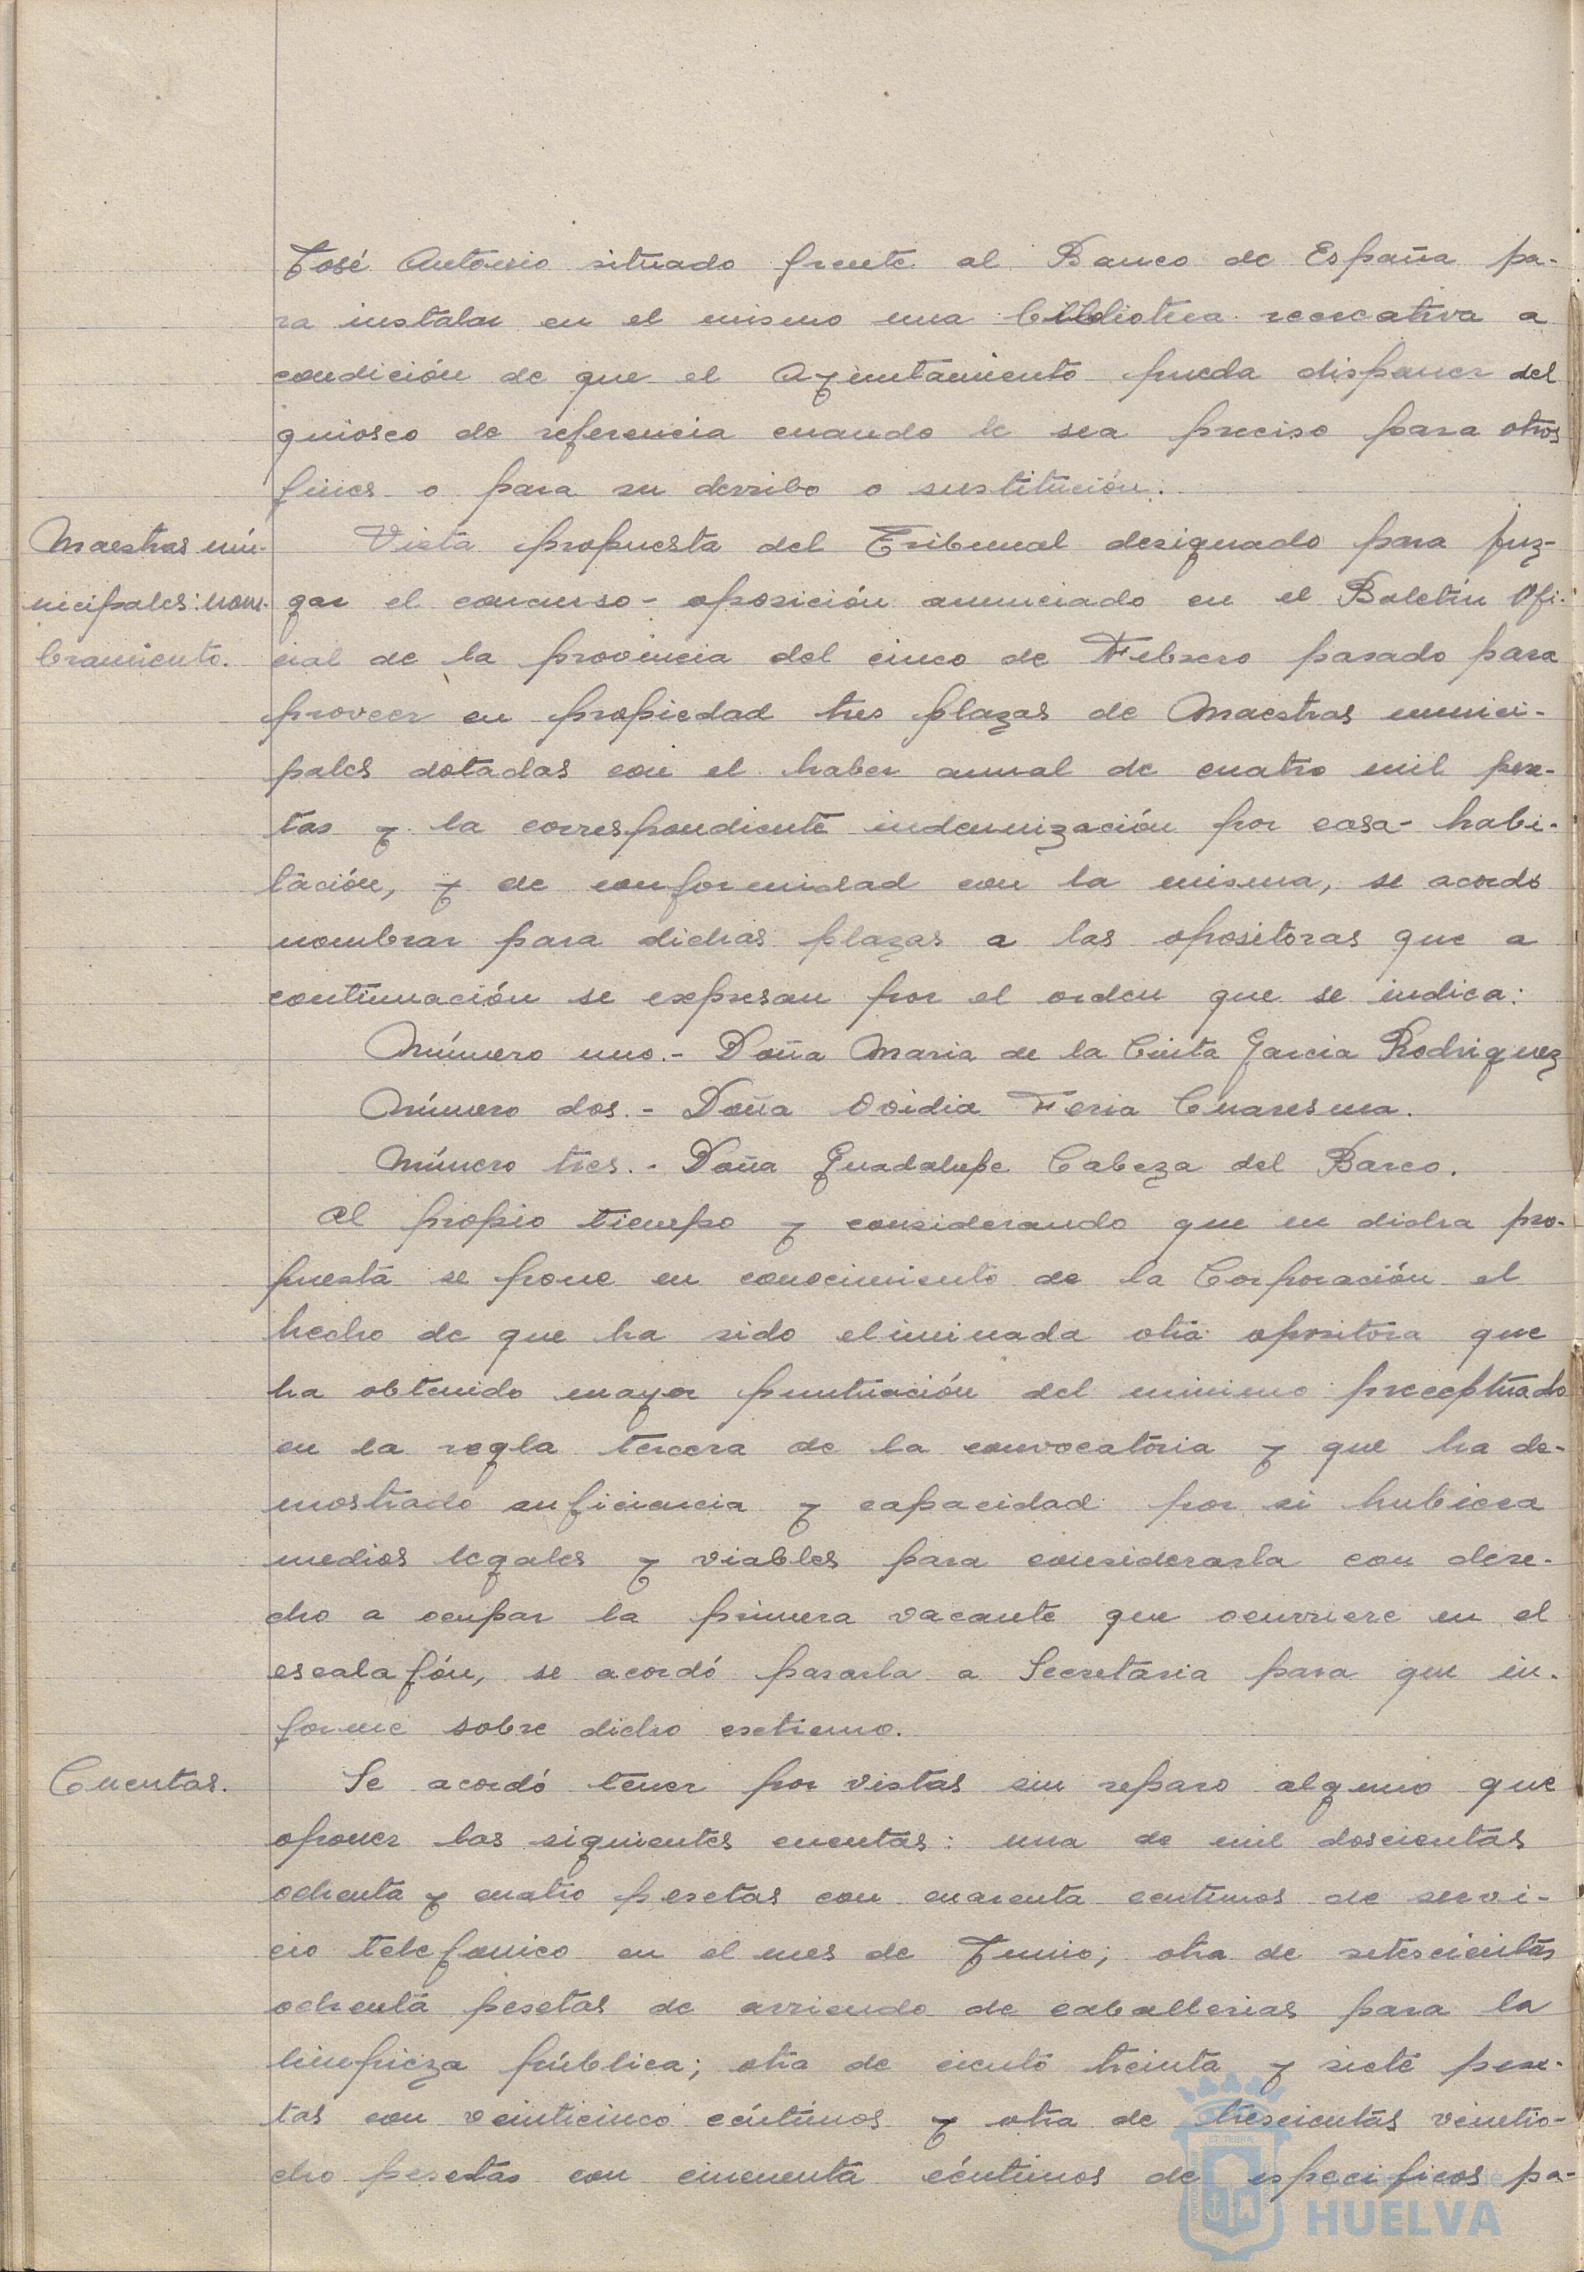 José Antonio situado frente al Banco de España pa-
ra instalar en el mismo una biblioteca recreativa a
condición de que el Ayuntamiento pueda disponer del
quiosco de referencia cuando le sea preciso para otros
fines o para su derribo o sustitución.
Maestras mu-
nicipales: nom-
bramiento.
Vista propuesta del Tribunal designado para juz-
gar el concurso-oposición anunciado en el Boletín Ofi-
cial de la provincia del cinco de Febrero pasado para
proveer en propiedad tres plazas de Maestras munici-
pales dotadas con el haber anual de cuatro mil pese-
tas y la correspondiente indemnización por casa-habi-
tación, y de conformidad con la misma, se acordó
nombrar para dichas plazas a las opositoras que a
continuación se expresan por el orden que se indica:
Número uno.- Doña Maria de la Cinta Garcia Rodriguez
Número dos.- Doña Ovidia Feria Cuaresma.
Número tres.- Doña Guadalupe Cabeza del Barco.
Al propio tiempo y considerando que en dicha pro-
puesta se pone en conocimiento de la Corporación el
hecho de que ha sido eliminada otra opositora que
ha obtenido mayor puntuación del minimo preceptuado
en la regla tercera de la convocatoria y que ha de-
mostrado suficiencia y capacidad por si hubiera
medios legales y viables para considerarla con dere-
cho a ocupar la primera vacante que ocurriere en el
escalafón, se acordó pasarla a Secretaria para que in-
forme sobre dicho extremo.
Cuentas.
Se acordó tener por vistas sin reparo alguno que
oponer las siguientes cuentas: una de mil doscientas
ochenta y cuatro pesetas con cuarenta centimos de servi-
cio telefonico en el mes de Junio; otra de setescientas
ochenta pesetas de arriendo de caballerias para la
limpieza pública; otra de ciento treinta y siete pese-
tas con veinticinco céntimos y otra de trescientas veintio-
cho pesetas con cincuenta céntimos de especificos pa-
HUELVA